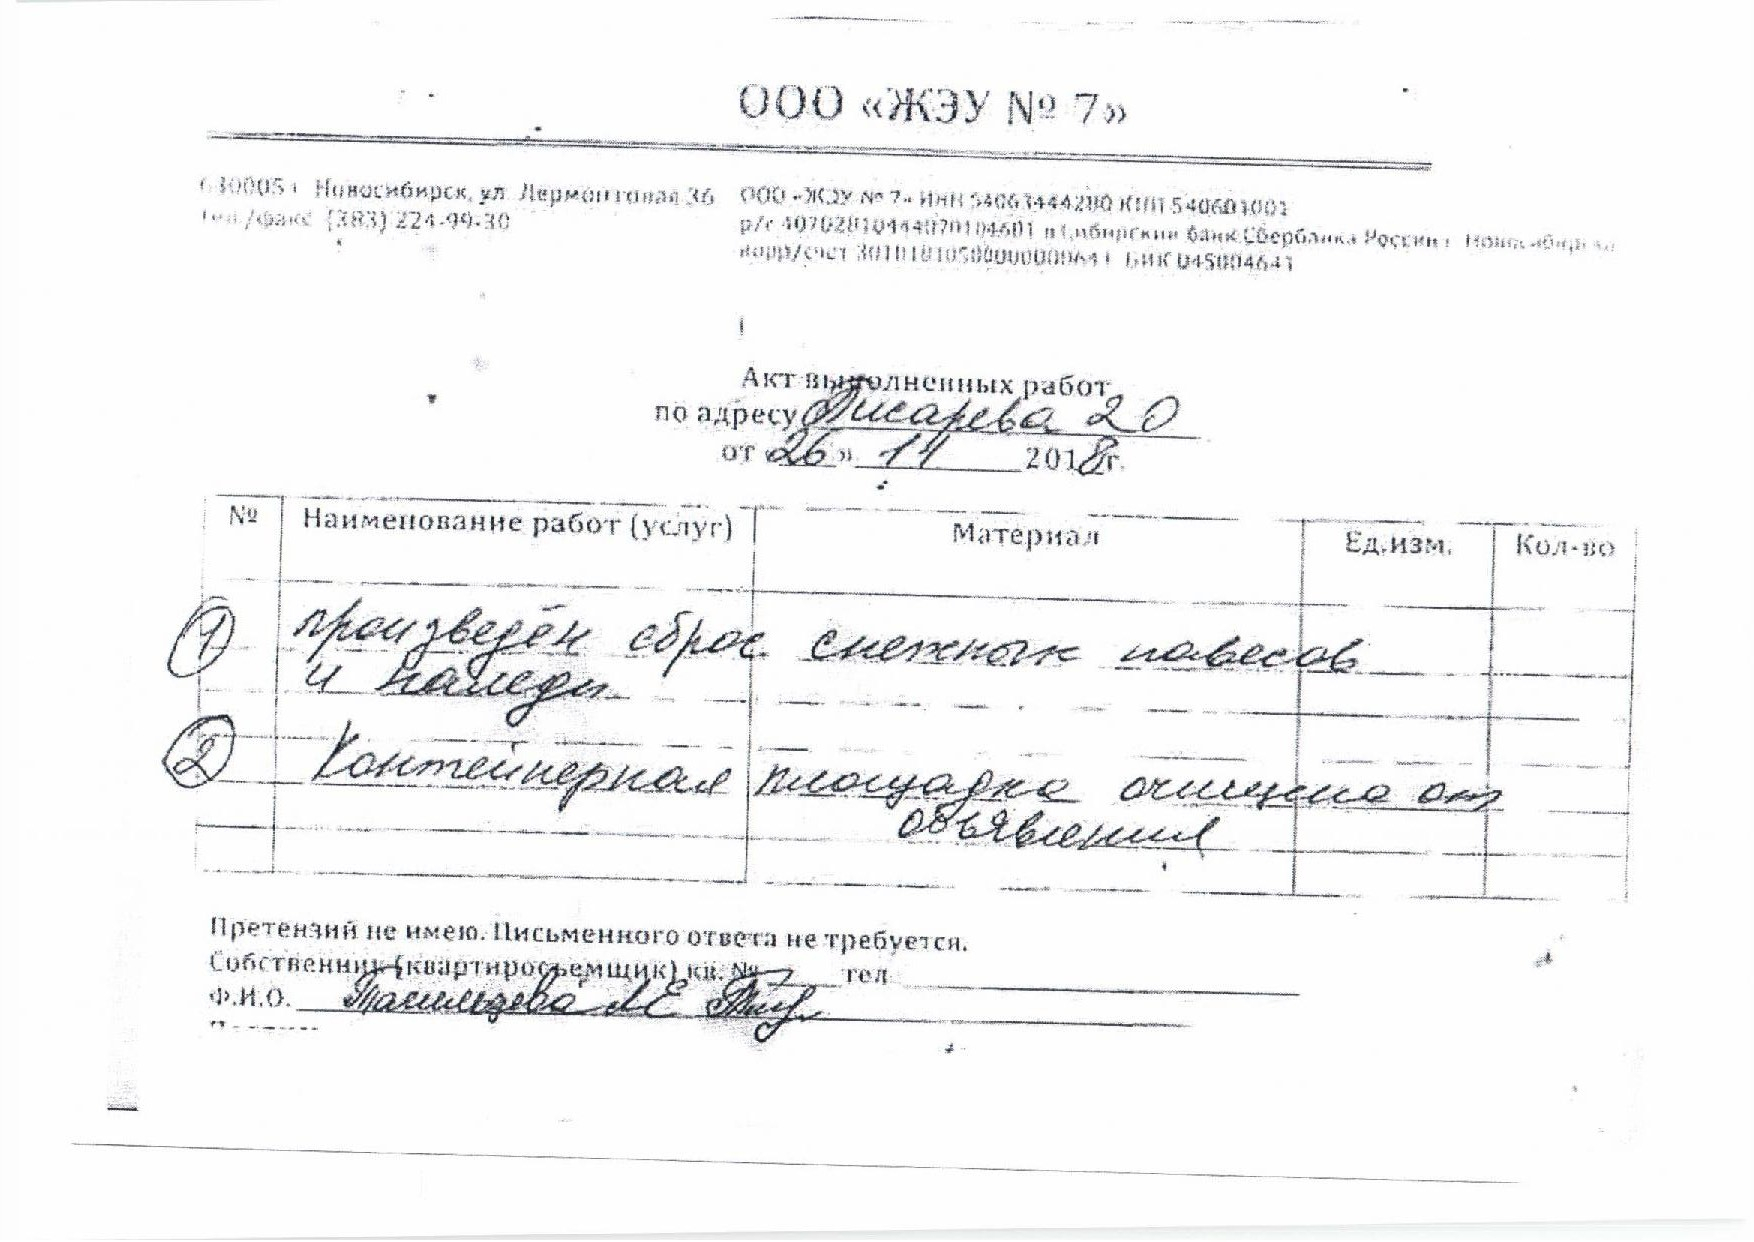 ООО «ЖЭУ № 7»
630005 г. Новосибирск, ул. Лермонтовая 36
тел./факс (383) 224-99-30
ООО «ЖЭУ № 7» ИНН 54063444280 КПП 540601001
р/с в Сибирский банк Сбербанка России г. Новосибирска
корр/счет БИК 045004641
Акт выполненных работ
по адресу Писарева 20
от «26» 11 2018г.
№ Наименование работ (услуг) Материал Ед.изм. Кол-во
1 произведён сброс снежных навесов
и наледи
2 Контейнерная площадка очищена от
объявлений
Претензий не имею. Письменного ответа не требуется.
Собственник (квартиросъемщик) кв. № 7 тел
Ф.И.О.